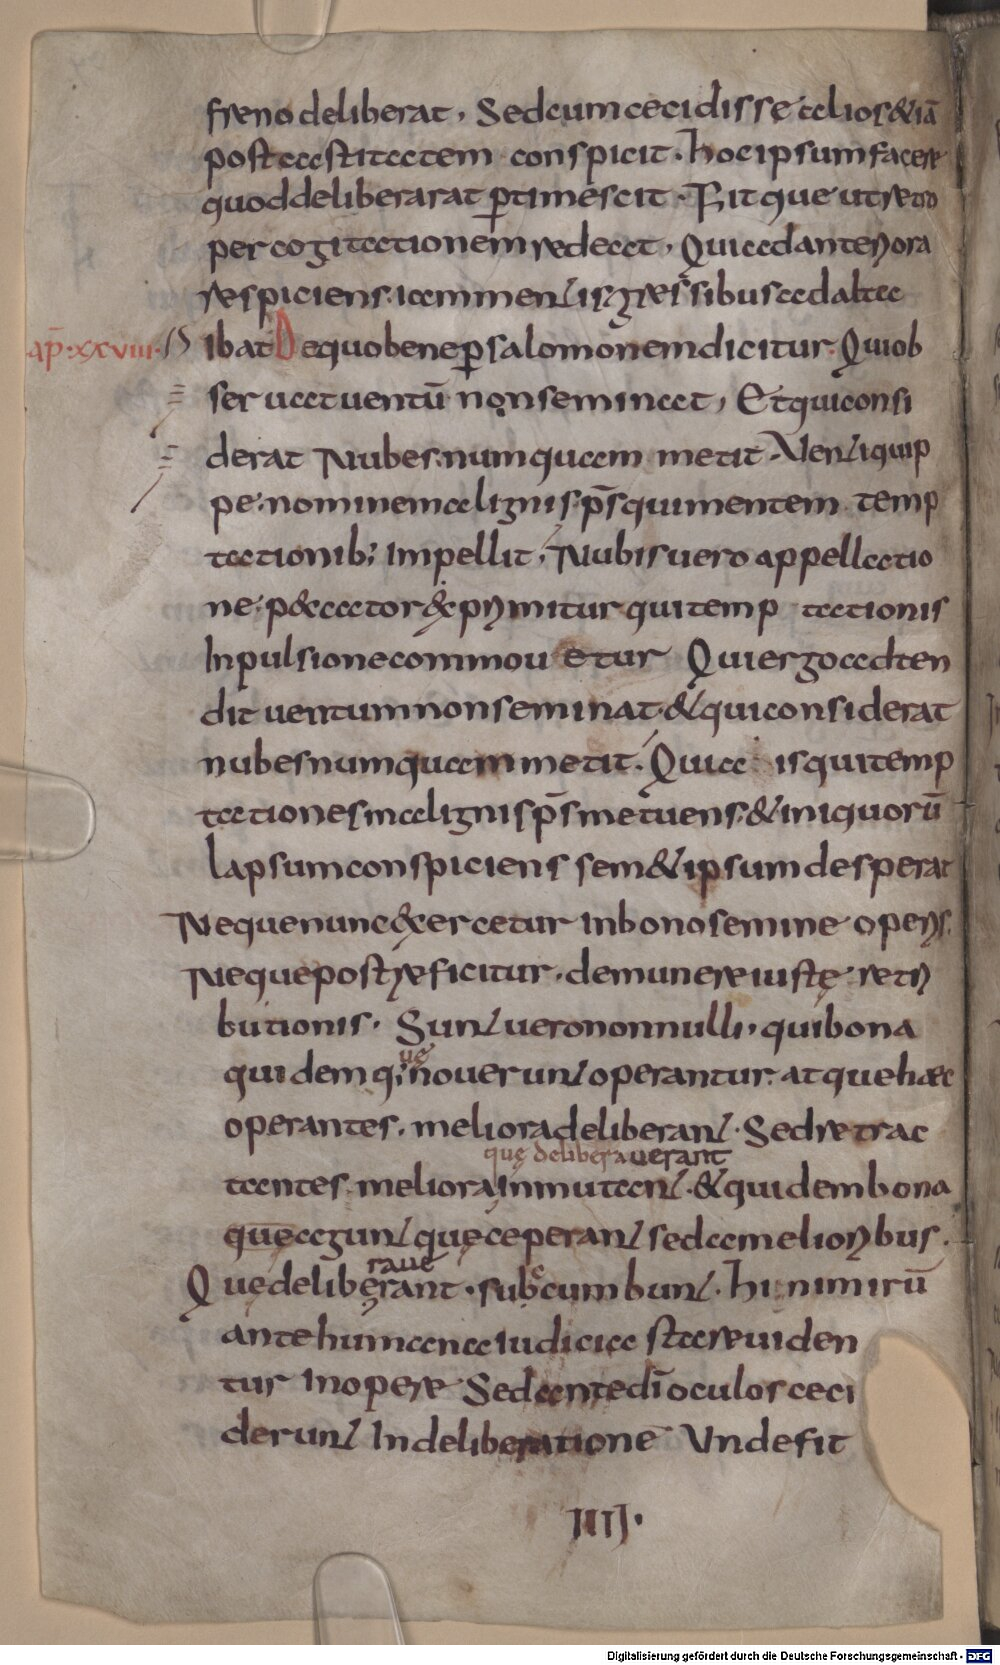 freno deliberat, Sed cum cecidisse alios & iā
post eā stitatem conspicit. hoc ipsum facere
quod deliberarat ꝑtimescit. Fitque ut retro
per cogitationem redeat, Qui ad anteriora
respiciens. iam mentis gressibus ad alta
ap̄. xxviii. ibat De quo bene ꝑ salomonem dicitur. Qui ob
seruat uentū non seminat, Et qui consi
derat Nubes. numquam metit. Uenti quip
pe. nomine malignis sp̄s qui mentem temp
tationib; Impellit, Nubis uero appellatio
ne. peccator exprimitur qui temp tationis
Inpulsione commouetur Qui ergo adten
dit uentum non seminat. & qui considerat
nubes numquam metit. Quia is qui temp
tationes maligni sp̄s metuens. & iniquorū
lapsum conspiciens semetipsum desperat
Neque nunc exercetur in bono semine operis.
Neque post reficitur. de munere iustę retri
butionis. Sunt uero nonnulli, qui bona
ue
quidem q; nouerunt operantur. atque haec
operantes. meliora deliberant. Sed retrac
quę deliberauerant
tantes meliora inmutant. & quidem bona
quę agunt quę ceperant sed a melioribus.
raue
Quę deliberant. subcumbunt. hi nimirū
ante humana iudicia stare uiden
tur In opere Sed ante dī oculos ceci
derunt In deliberatione Unde fit
IIII.
Digitalisierung gefördert durch die Deutsche Forschungsgemeinschaft - DFG